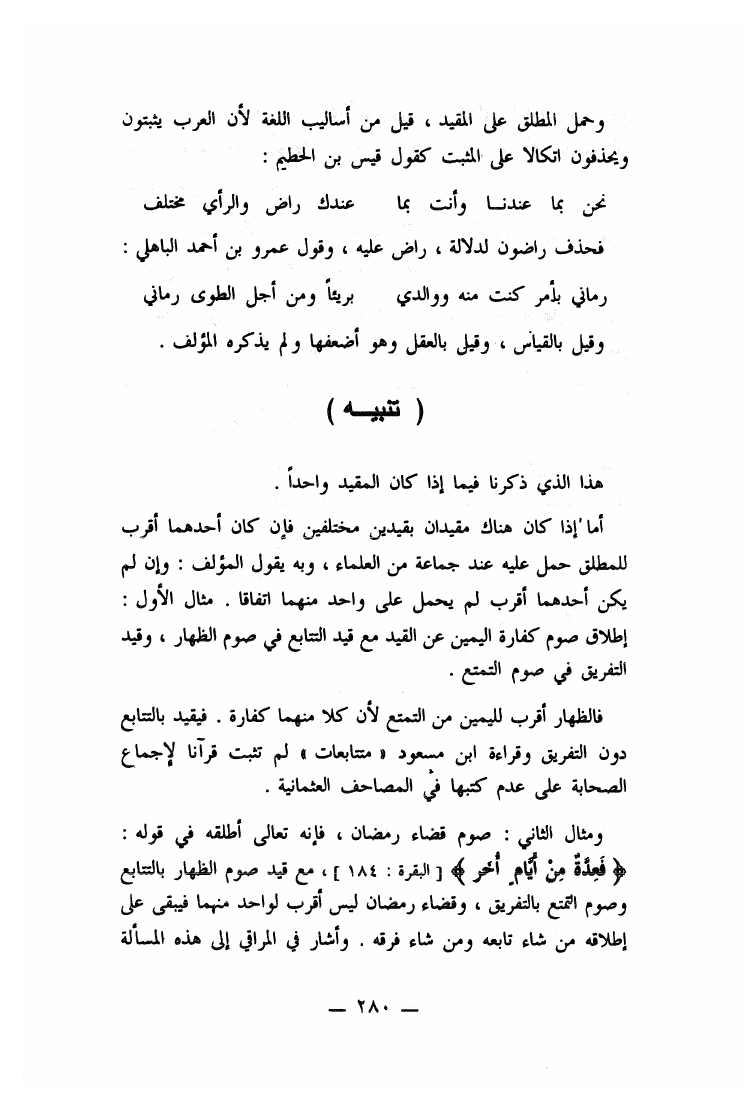 وحمل المطلق على المقيد ، قيل من أساليب اللغة لأن العرب يثبتون
ويحذفون اتكالا على المثبت كقول قيس بن الخطيم :
نحن بما عندنــا وأنت بما عندك راض والرأي مختلف
فحذف راضون لدلالة ، راض عليه ، وقول عمرو بن أحمد الباهلي :
رماني بأمر كنت منه ووالدي بريئاً ومن أجل الطوى رماني
وقيل بالقياس ، وقيل بالعقل وهو أضعفها ولم يذكره المؤلف .
( تنبيــه )
هذا الذي ذكرنا فيما إذا كان المقيد واحداً .
أما إذا كان هناك مقيدان بقيدين مختلفين فإن كان أحدهما أقرب
للمطلق حمل عليه عند جماعة من العلماء ، وبه يقول المؤلف : وإن لم
يكن أحدهما أقرب لم يحمل على واحد منهما اتفاقا . مثال الأول :
إطلاق صوم كفارة اليمين عن القيد مع قيد التتابع في صوم الظهار ، وقيد
التفريق في صوم التمتع .
فالظهار أقرب لليمين من التمتع لأن كلا منهما كفارة . فيقيد بالتتابع
دون التفريق وقراءة ابن مسعود « متتابعات » لم تثبت قرآنا لإجماع
الصحابة على عدم كتبها في المصاحف العثمانية .
ومثال الثاني : صوم قضاء رمضان ، فإنه تعالى أطلقه في قوله :
﴿ فَعِدَّةٌ مِنْ أَيَّامٍ أُخَر ﴾ [ البقرة : ١٨٤ ] ، مع قيد صوم الظهار بالتتابع
وصوم التمتع بالتفريق ، وقضاء رمضان ليس أقرب لواحد منهما فيبقى على
إطلاقه من شاء تابعه ومن شاء فرقه . وأشار في المراقي إلى هذه المسألة
— ٢٨٠ —